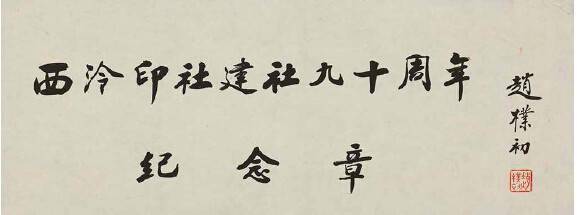 西泠印社建社九十周年
纪念章
趙樸初